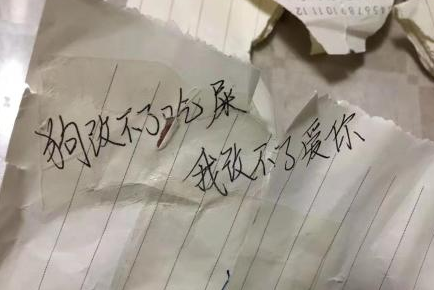 狗改不了吃屎
我改不了爱你
4567891011112